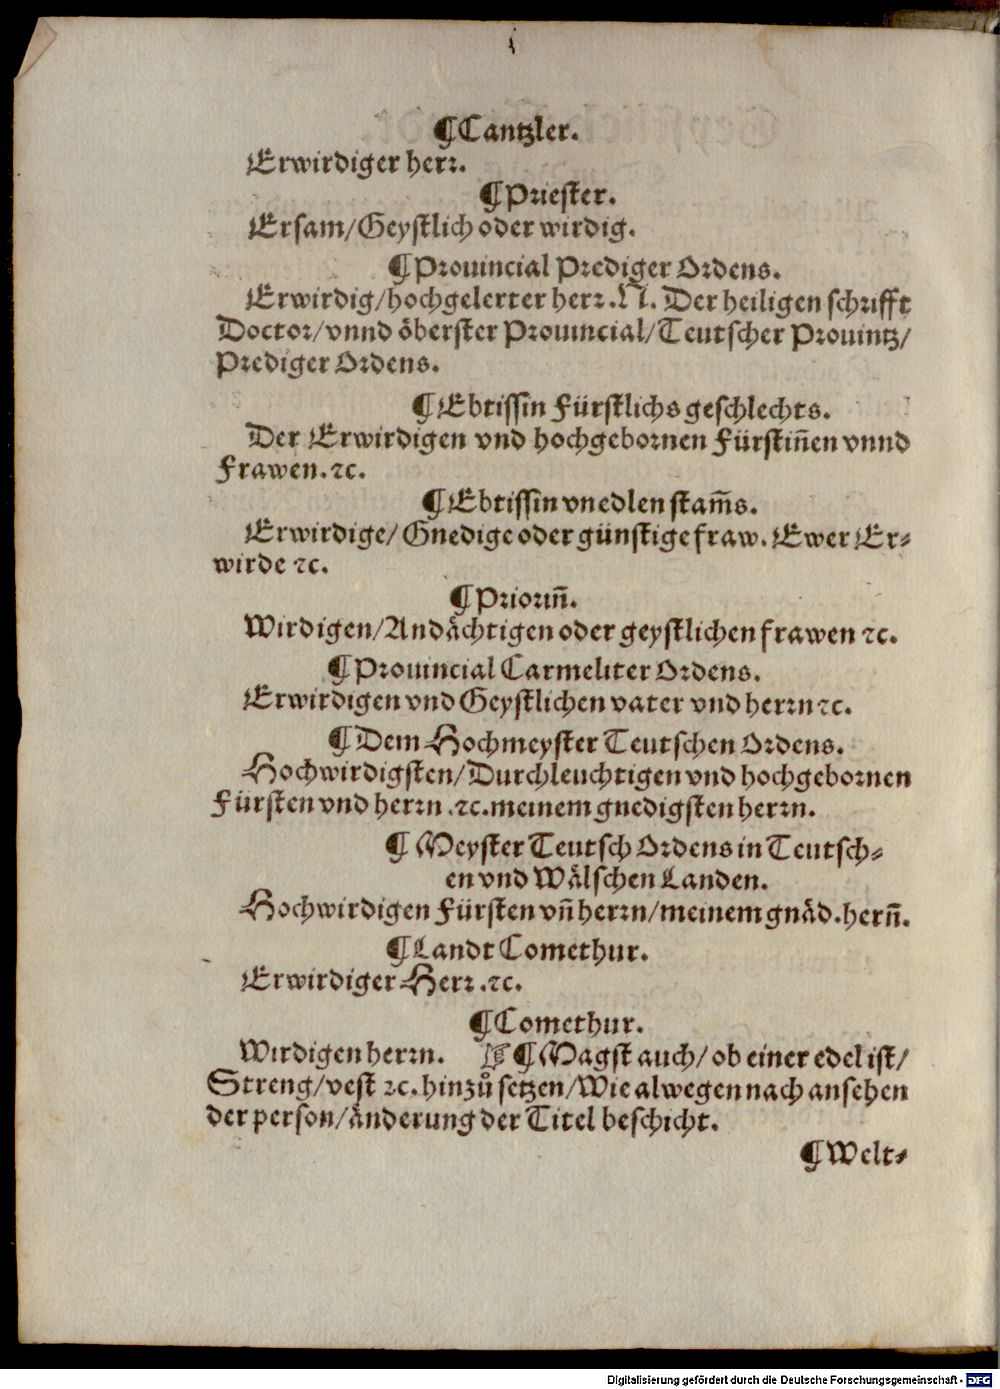 ¶Cantzler.
Erwirdiger herr.
¶Priester.
Ersam/Geystlich oder wirdig.
¶Prouincial Prediger Ordens.
Erwirdig/hochgelerter herr .N. Der heiligen schrifft
Doctor/vnnd öberster Prouincial/Teutscher Prouintz/
Prediger Ordens.
¶Ebtissin Fürstlichs geschlechts.
Der Erwirdigen vnd hochgebornen Fürstiñen vnnd
Frawen.ꝛc.
¶Ebtissin vnedlen stam̃s.
Erwirdige/Gnedige oder günstige fraw. Ewer Er⸗
wirde ꝛc.
¶Priorin̄.
Wirdigen/Andächtigen oder geystlichen frawen ꝛc.
¶Prouincial Carmeliter Ordens.
Erwirdigen vnd Geystlichen vater vnd herrn ꝛc.
¶Dem Hochmeyster Teutschen Ordens.
Hochwirdigsten/Durchleuchtigen vnd hochgebornen
Fürsten vnd herrn .ꝛc. meinem gnedigsten herrn.
¶Meyster Teutsch Ordens in Teutsch⸗
en vnd Wälschen Landen.
Hochwirdigen Fürsten vñ herrn/meinem gnäd.herñ.
¶Landt Comethur.
Erwirdiger Herr .ꝛc.
¶Comethur.
Wirdigen herrn. ☞ ¶Magst auch/ob einer edel ist/
Streng/vest ꝛc. hinzů setzen/Wie alwegen nach ansehen
der person/änderung der Titel beschicht.
¶Welt⸗
Digitalisierung gefördert durch die Deutsche Forschungsgemeinschaft - DFG